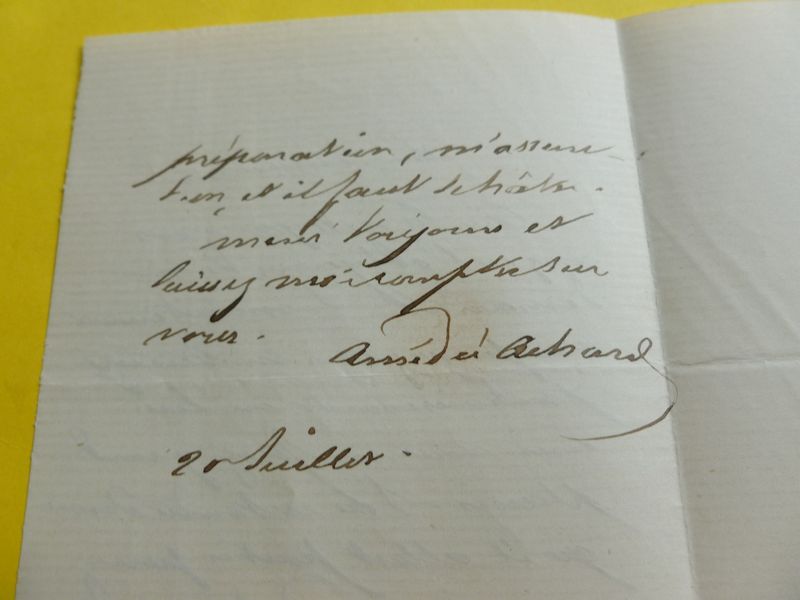 préparation, m'assure-
t-on, et il faut se hâter.
merci toujours et
laissez moi compter sur
vous.
Amédée Achard
20 Juillet.